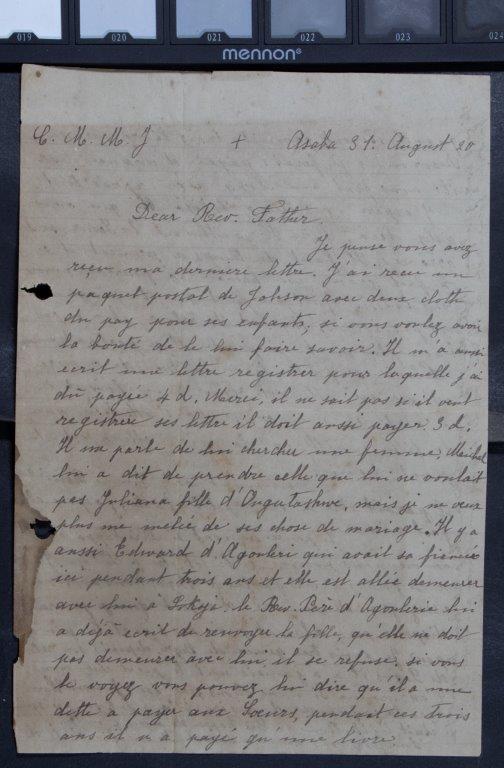 019 020 021 022 023 024
mennon®
C. M. M. J + Asaba 31. August 20
Dear Rev. Father.
Je pense vous avez
reçu ma derniere lettre. J'ai recu un
paquet postal de Johson avec deux cloth
du pay pour ses enfants, si vous voulez avoir
la bonté de le lui faire savoir. Il m'a aussi
ecrit une lettre registrer pour laquelle j'ai
dû payee 4 d. Merci, il ne sait pas si il veut
registrere ses lettre il doit aussi payer 3 d.
Il me parle de lui chercher une femme, Meichel
lui a dit de prendre celle que lui ne voulait
pas Juliana fille d'Ongutashwe, mais je ne veux
plus me melée de ses chose de mariage. Il y a
aussi Edward d'Agouleri qui avait sa fiencée
ici pendant trois ans et elle est allée demeurer
avec lui à Lokoja, le Rev. Père d'Agoulerie lui
a déjà ecrit de renvoyer la fille, qu'elle ne doit
pas demeurer avec lui, il se refuse, si vous
le voyez vous pouvez lui dire qu'il a une
dette a payer aux Sœurs, pendant ces trois
ans il n'a payé qu'une livre